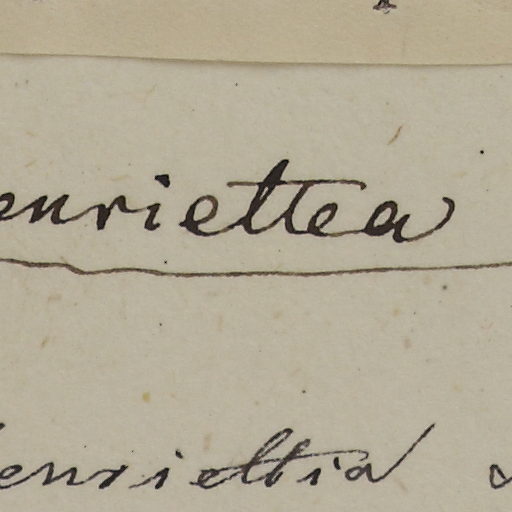 enriettea
enriettia